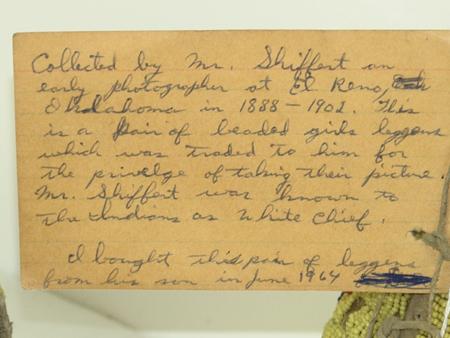 Collected by Mr. Shiffert an
early photographer at El Reno,
Oklahoma in 1888-1902. This
is a pair of beaded girls leggens
which was traded to him for
the privelge of taking their picture.
Mr. Shiffert was known to
the Indians as White Chief.
I bought this pair of leggens
from his son in June 1964